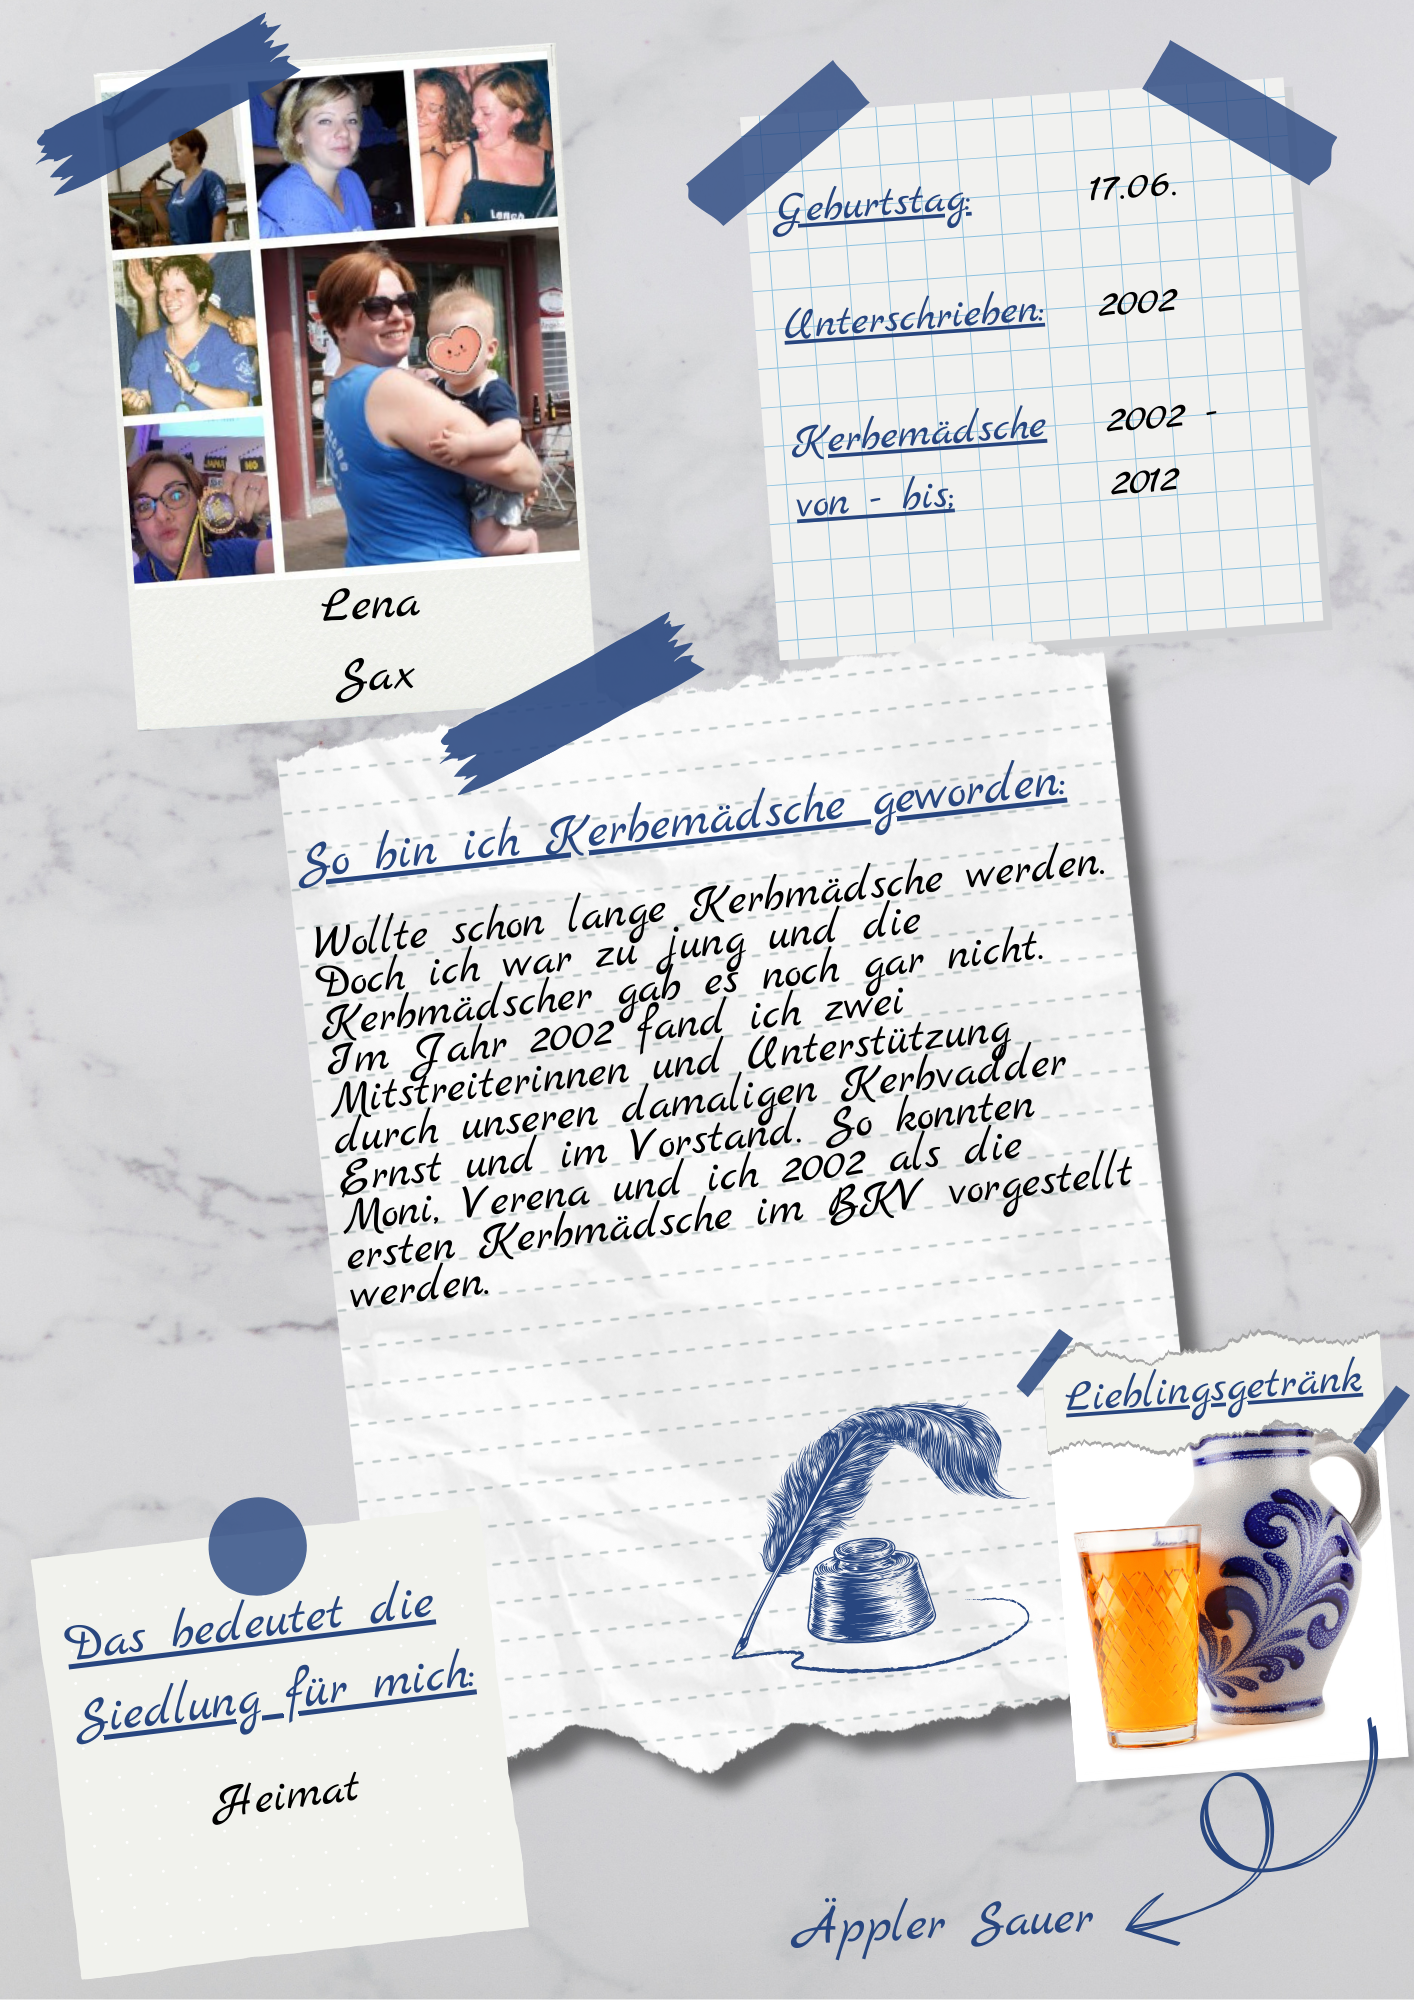 Lena
Sax
Geburtstag: 17.06.
Unterschrieben: 2002
Kerbemädsche 2002 -
von - bis; 2012
So bin ich Kerbemädsche geworden:
Wollte schon lange Kerbmädsche werden.
Doch ich war zu jung und die
Kerbmädscher gab es noch gar nicht.
Im Jahr 2002 fand ich zwei
Mitstreiterinnen und Unterstützung
durch unseren damaligen Kerbvadder
Ernst und im Vorstand. So konnten
Moni, Verena und ich 2002 als die
ersten Kerbmädsche im BKV vorgestellt
werden.
Lieblingsgetränk
Das bedeutet die
Siedlung für mich:
Heimat
Äppler Sauer